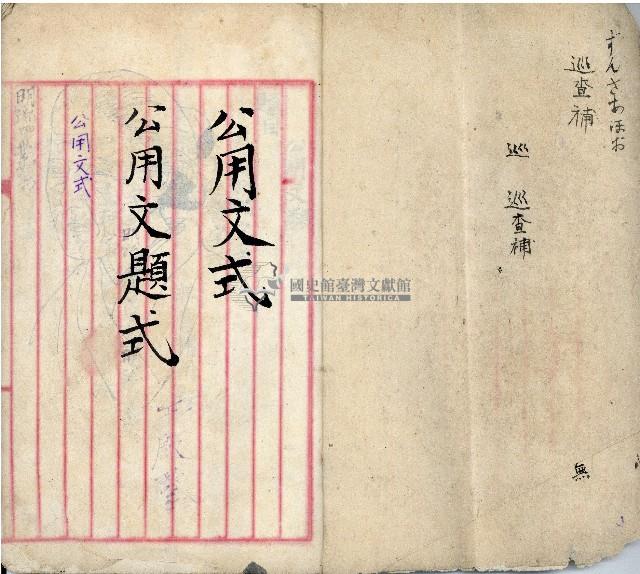 巡查補
巡
巡查補
無
公用文式
公用文題式
公用文式
國史館臺灣文獻館
TAIWAN HISTORICA